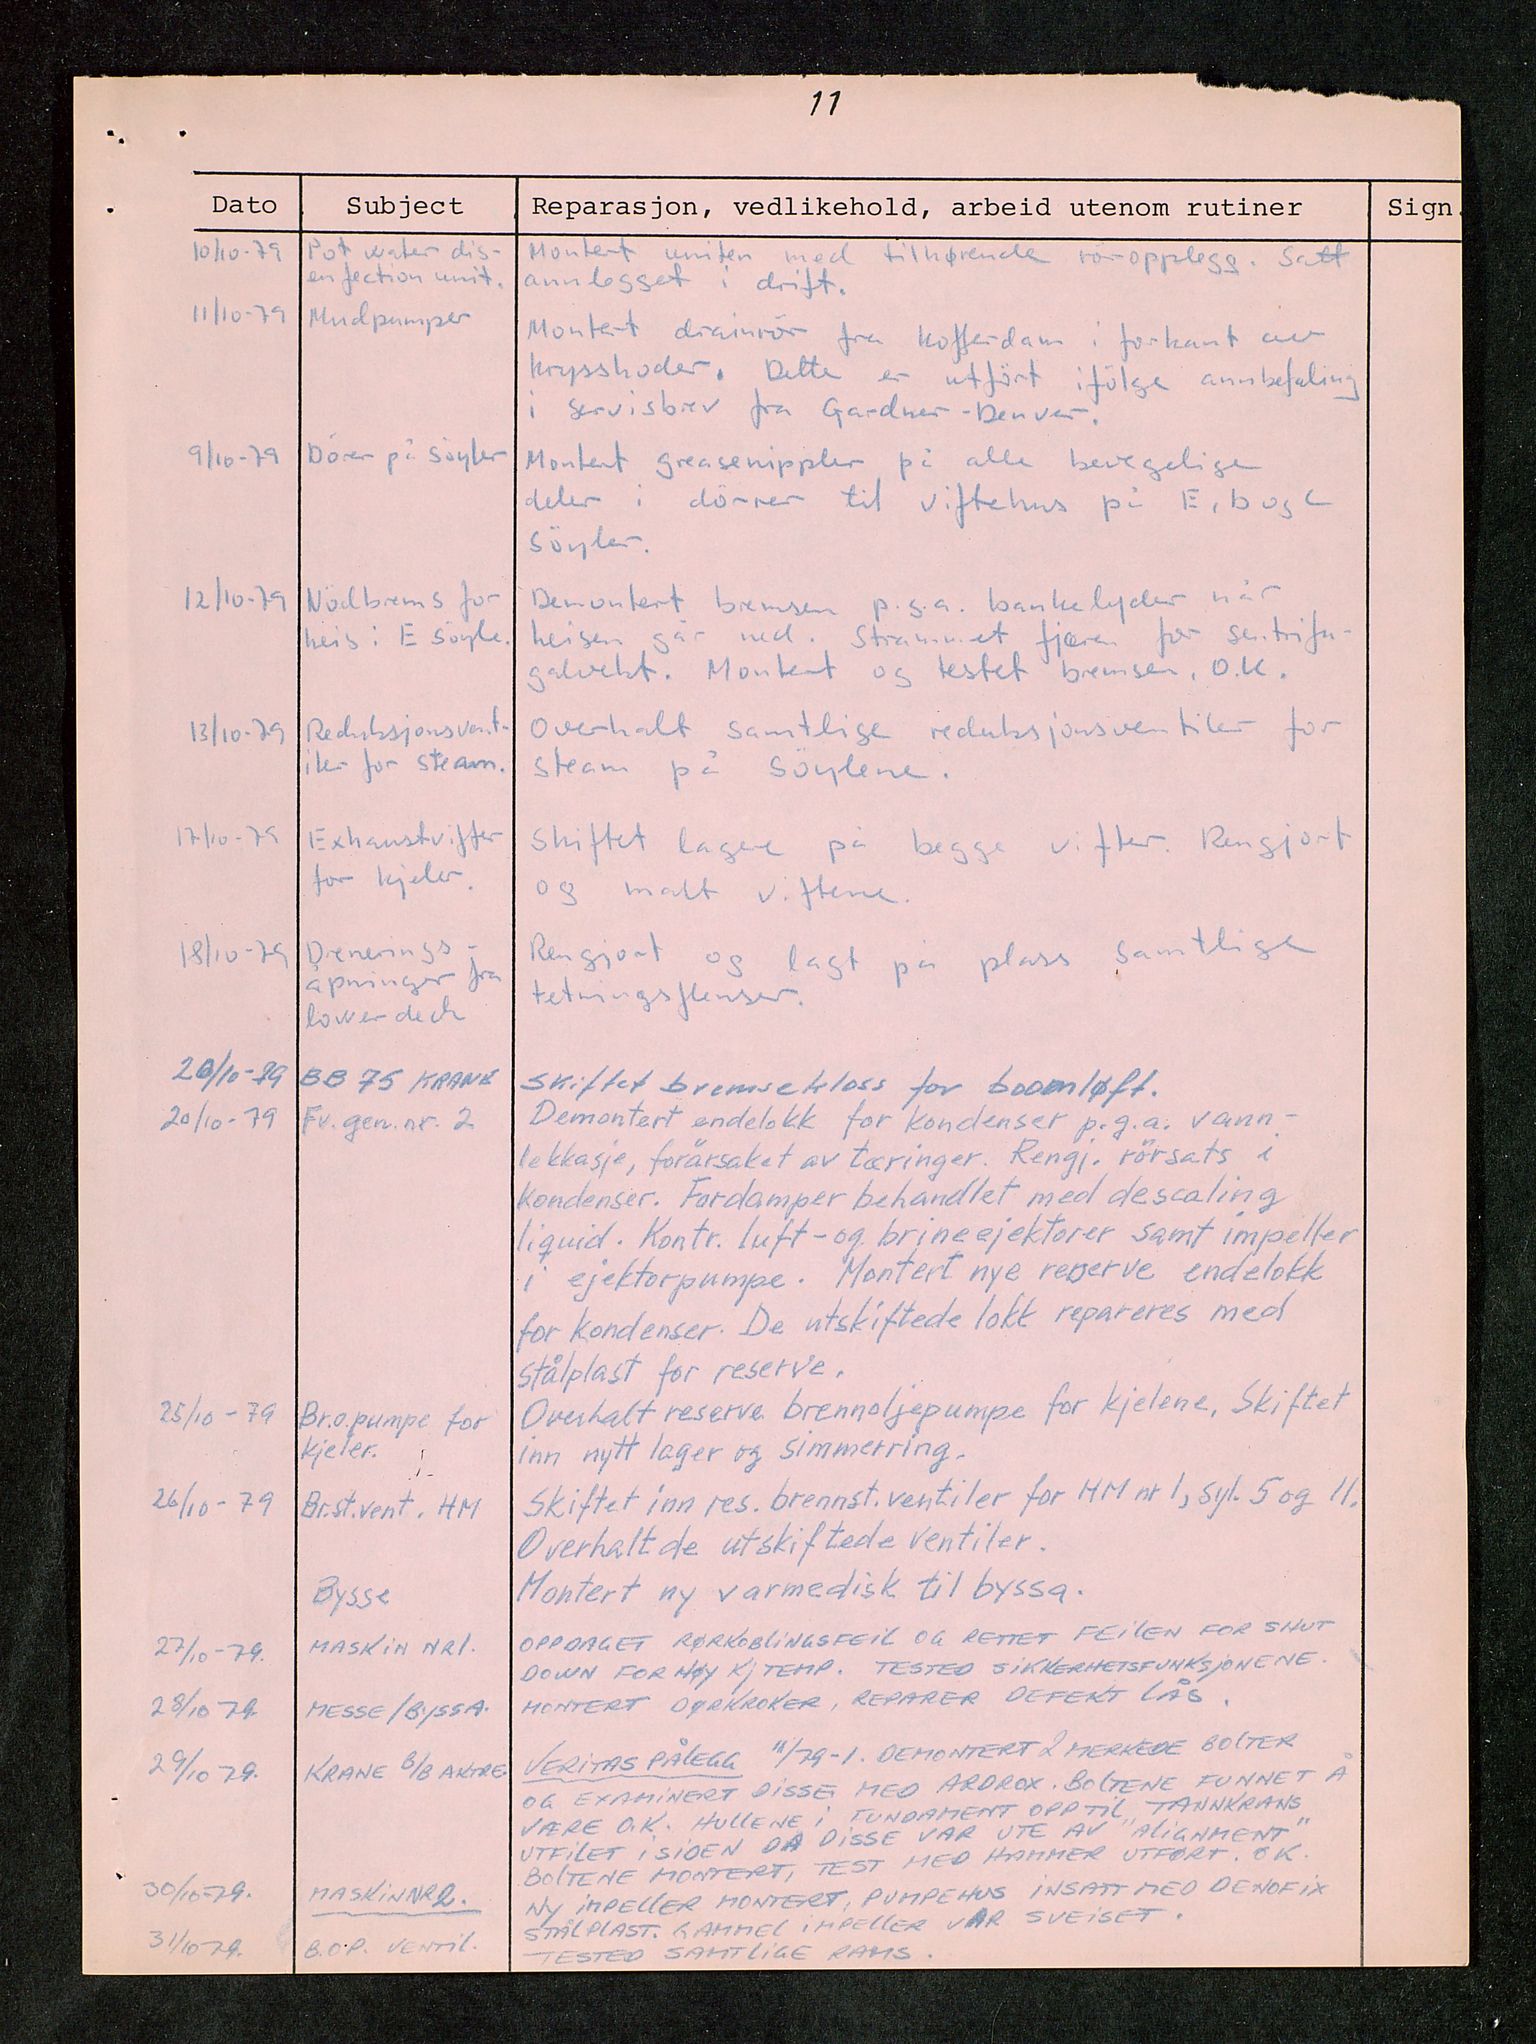 11
Dato Subject Reparasjon, vedlikehold, arbeid utenom rutiner Sign.
10/10-79 Pot water dis- Montert uniten med tilhørende röropplegg. Satt
enfection unit. annlegget i drift.
11/10-79 Mudpumper
Montert drainrör fra kofferdam i forkant av
krysshoder. Dette er utfört ifölge annbefaling
i servisbrev fra Gardner-Denver.
9/10-79 Dörer på Söyler Montert greasenippler på alle bevegelige
deler i dörrer til viftehus på E, b og c
Söyler.
12/10-79 Nödbrems for Demontert bremsen p.g.a. bankelyder når
heis i E söyle. heisen går ned. Strammet fjæren for sentrifu-
galvekt. Montert og testet bremsen. O.K.
13/10-79 Reduksjonsvent- Overhalt samtlige reduksjonsventiler for
iler for steam. steam på Söylene.
17/10-79 Exhaustvifter Skiftet lagere på begge vifter. Rengjort
for kjeler. og malt viftene.
18/10-79 Drenerings- Rengjort og lagt på plass samtlige
åpninger fra tetningsflenser.
lower deck
20/10-79 BB 75 KRANE Skiftet bremsekloss for boomløft.
20/10-79 Fv. gen. nr. 2 Demontert endelokk for kondenser p.g.a. vann-
lekkasje, forårsaket av tæringer. Rengj. rörsats i
kondenser. Fordamper behandlet med descaling
liquid. Kontr. luft- og brineejektorer samt impeller
i ejektorpumpe. Montert nye reserve endelokk
for kondenser. De utskiftede lokk repareres med
stålplast for reserve.
25/10-79 Br.o.pumpe for Overhalt reserve brennoljepumpe for kjelene, Skiftet
kjeler. inn nytt lager og simmerring.
26/10-79 Br.st.vent. HM Skiftet inn res. brennst.ventiler for HM nr 1, syl. 5 og 11.
Overhalt de utskiftede ventiler.
Bysse Montert ny varmedisk til byssa.
27/10-79. MASKIN NR1. OPPDAGET RØRKOBLINGSFEIL OG RETTET FEILEN FOR SHUT
DOWN FOR HØY KJ TEMP. TESTED SIKKERHETSFUNKSJONENE.
28/10 79. MESSE/BYSSA. MONTERT DØRKROKER, REPARER DEFEKT LÅS.
29/10 79. KRANE B/B AKTRE. VERITAS PÅLEGG 11/79-1. DEMONTERT 2 MERKEDE BOLTER
OG EXAMINERT DISSE MED ARDROX. BOLTENE FUNNET Å
VÆRE O.K. HULLENE I FUNDAMENT OPP TIL TANNKRANS
UTFILET I SIDEN DA DISSE VAR UTE AV "ALIGNMENT"
BOLTENE MONTERT, TEST MED HAMMER UTFØRT. OK.
30/10-79. MASKIN NR2. NY IMPELLER MONTERT, PUMPEHUS INSATT MED DENOFIX
STÅLPLAST. GAMMEL IMPELLER VAR SVEISET.
31/10 79. B.O.P. VENTIL. TESTED SAMTLIGE RAMS.